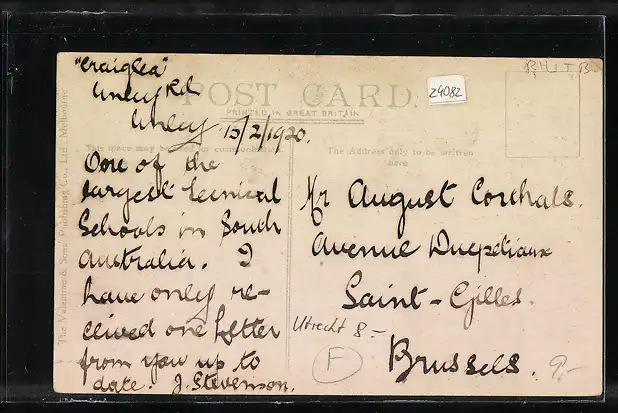 "Craiglea"
Unley Rd
Unley 15/2/1920.
POST CARD.
PRINTED IN GREAT BRITAIN
This space may be used for communication.
The Address only to be written
here
24082
R H I T B
One of the
largest tecnical
Schools in South
Australia. I
have only re-
ceived one letter
from you up to
date. J. Stevenson.
Mr August Corthals.
Avenue Ducpétiaux
Saint-Gilles.
Brussels.
Utrecht 8-
F
9,-
The Valentine & Sons Publishing Co., Ltd. Melbourne